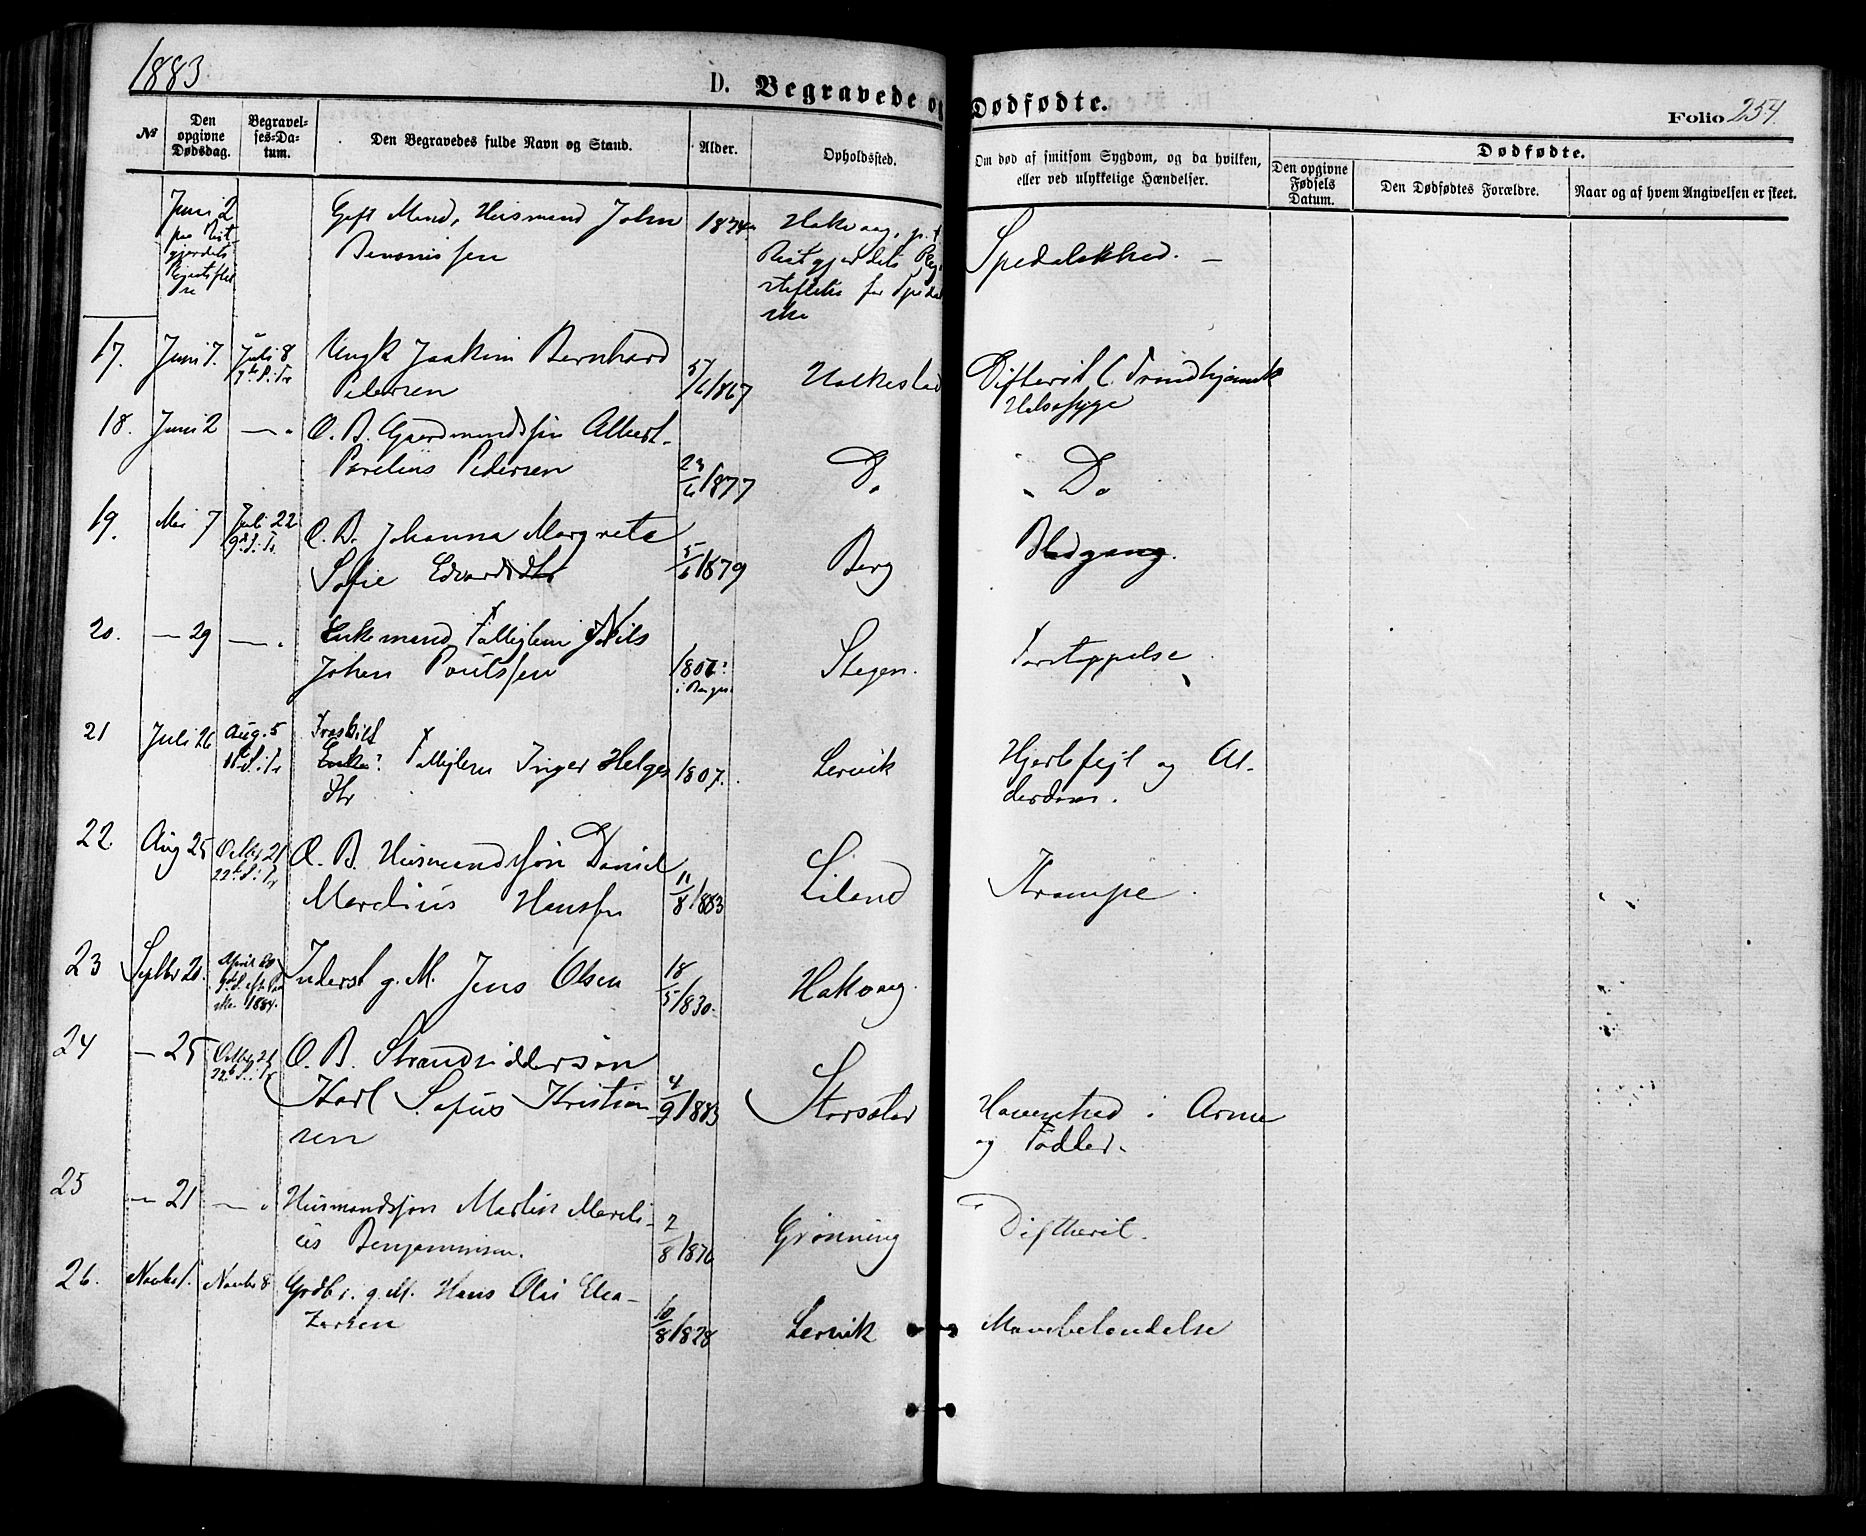 1883
D. Begravede og Dødfødte.
Folio 254.
№
Den opgivne Dødsdag.
Begravelses-Datum.
Den Begravedes fulde Navn og Stand.
Alder.
Opholdssted.
Om død af smitsom Sygdom, og da hvilken, eller ved ulykkelige Hændelser.
Dødfødte.
Den opgivne Fødsels Datum.
Den Dødfødtes Forældre.
Naar og af hvem Angivelsen er skeet.
Juni 2
Gift Mand, Husmand John
1824
Hakvaag, p. t.
Reitgjerdets
Spedalskhed. –
17. Juni 7. Juli 8 Ungk Joakim Bernhard
Pedersen 5/6 1867 Halkestad Difterit (Trondhjemsk
Halssyge
18. Juni 2 — " O. B. Gaardmandssøn Albert
Parelius Pedersen 23/6 1877 Do " Do
19. Mai 7 Juli 22 O. B. Johanna Margrete
Sofie Edvardsdtr 5/6 1879 Berg Blodgang.
20. — 29 — " Enkemand, Fattiglem Nils
Johan Poulssen Stegen. Forstoppelse
21 Juli 26 Aug. 5 Fraskilt
Enke? Fattiglem Inger Helges
dtr 1807. Lervik Hjertefejl og Al-
derdom.
22. Aug 25 Octbr 21 O. B. Husmandssøn Daniel
Marelius Hanssen 11/8 1883 Liland Krampe.
23 Septbr 21. April 20 Inderst g. M. Jens Olsen 18/5 1830. Hakvaag.
1884.
24 — 25 Octbr 21 O. B. Strandsidderssøn
Karl Sofus Kristian
sen 4/9 1883 Storskar Hovenhed i Arme
og Fødder.
25 — 21 — " Husmandssøn Martin Mareli-
us Benjaminsen. 2/8 1876 Grønning Diftherit.
26. Novbr 1. Novbr 8 Grdbr. g. M. Hans Olai Elea-
zersen 10/8 1828 Lervik Mavebetændelse